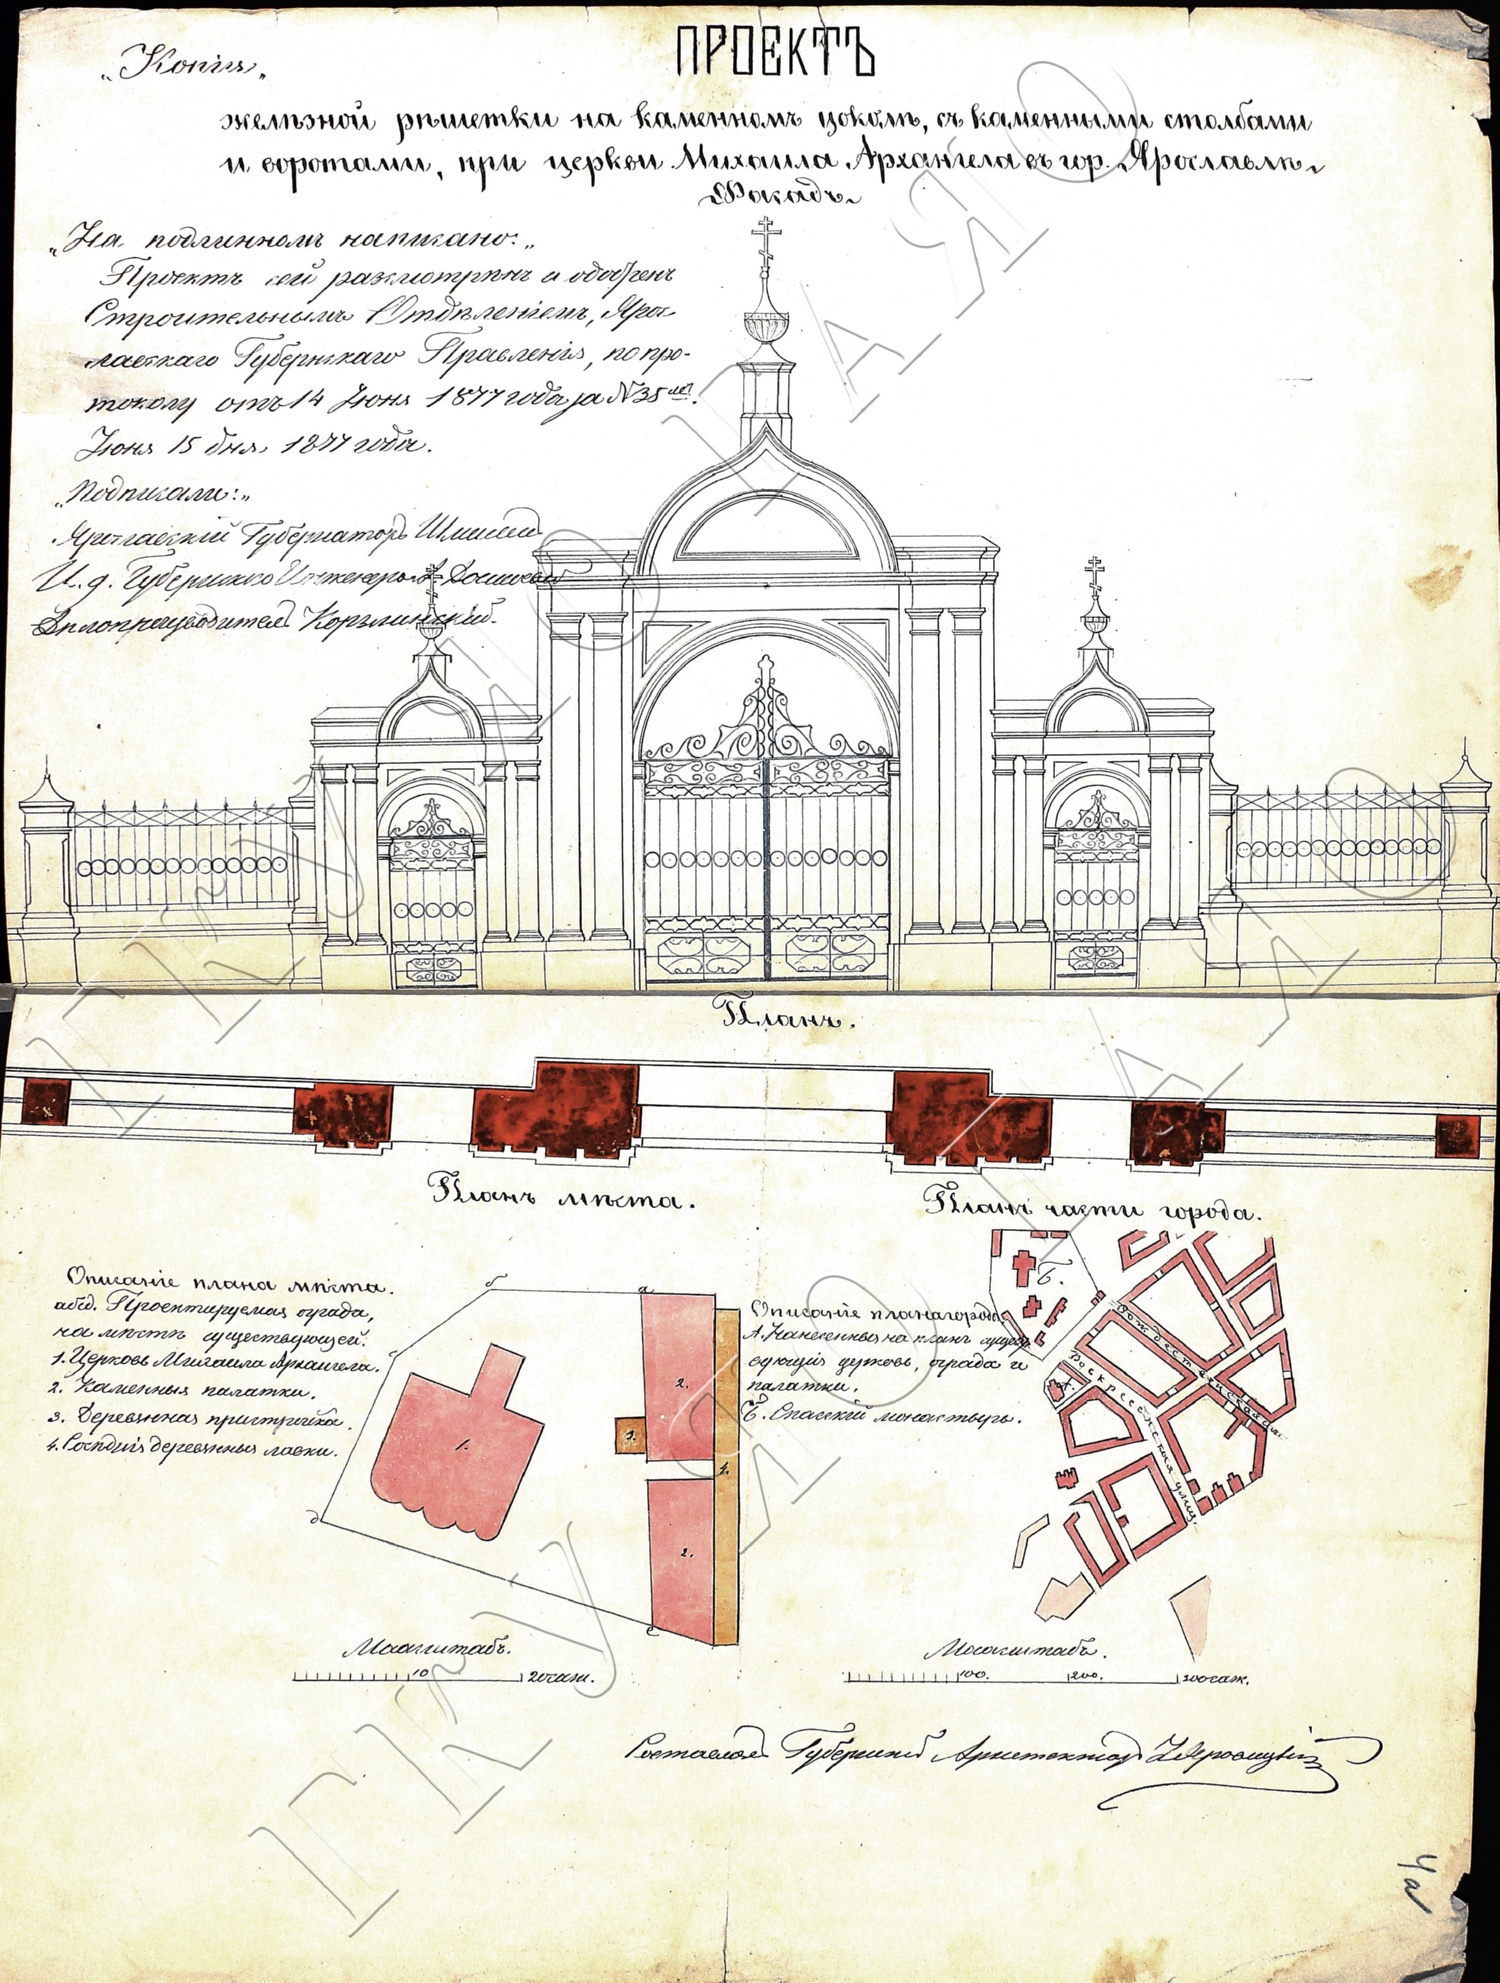 „Копія„
ПРОЕКТЪ
желѣзной рѣшетки на каменномъ цоколѣ, съ каменными столбами
и воротами, при церкви Михаила Архангела въ гор. Ярославлѣ.
Фасадъ.
„На подлинномъ написано:„
Проектъ сей разсмотрѣнъ и одобренъ
Строительнымъ Отдѣленіемъ, Яро-
славскаго Губернскаго Правленія, по про-
токолу отъ 14 Іюня 1877 года за №35
Іюня 15 дня 1877 года.
„Подписали:„
Ярославскій Губернаторъ
И. д. Губернскаго Инженера А.
Дѣлопроизводитель
Планъ.
Планъ мѣста.
Планъ части города.
Описаніе плана мѣста.
абгд. Проектируемая ограда,
на мѣстѣ существующей.
1. Церковь Михаила Архангела.
2. Каменныя палатки.
3. Деревянная пристройка.
4. деревянныя лавки.
б
а
с
д
е
1.
2.
3.
4.
2.
Описаніе плана города
А. Нанесенныя на планъ сущест-
вующія церковь, ограда и
палатки.
Б. Спаскій монастырь.
Б.
А.
Рождественская ул.
Воскресенская улица.
Масштабъ.
10 20 саж.
Масштабъ.
100. 200. 300 саж.
Составлялъ Губернскій Архитекторъ
4а
ГКУ ЯО ГАЯО
ГКУ ЯО ГАЯО
ГКУ ЯО ГАЯО